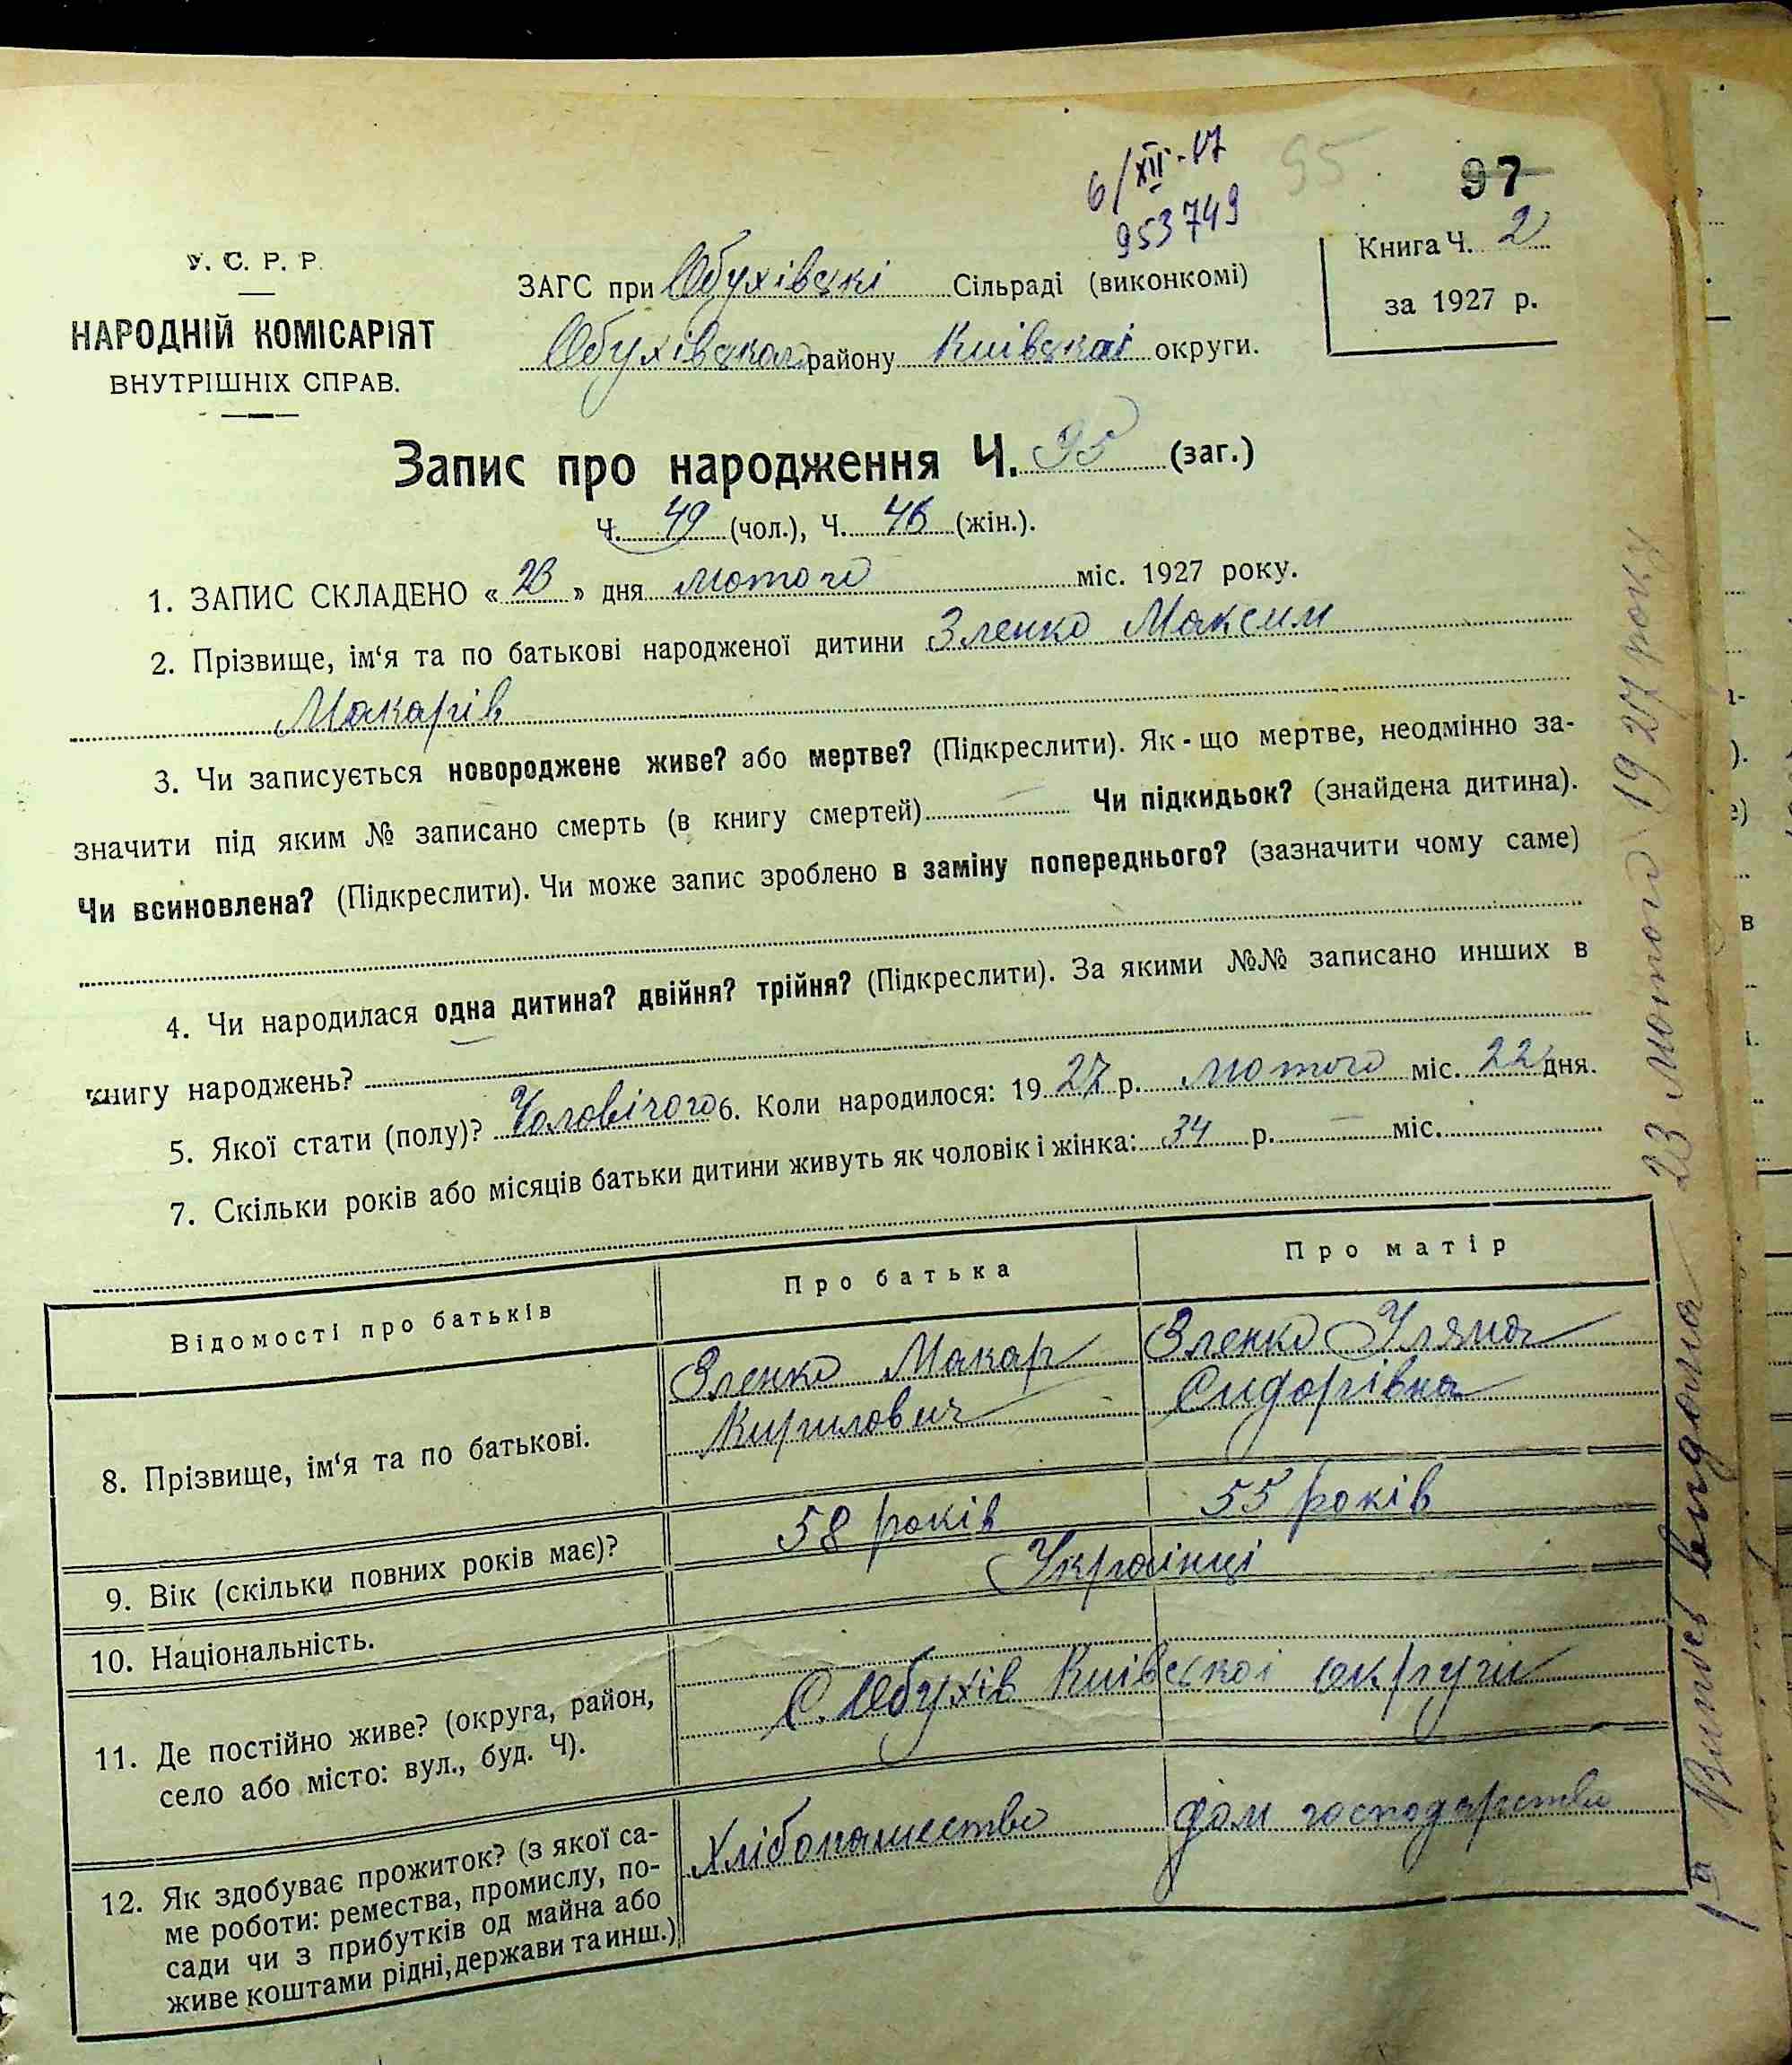 6/XII-47
953749
95
97
У. С. Р. Р.
НАРОДНІЙ КОМІСАРІЯТ
ВНУТРІШНІХ СПРАВ.
ЗАГС при Обухівскі Сільраді (виконкомі)
Обухівского району Київскої округи.
Книга Ч. 2
за 1927 р.
Запис про народження Ч. 95 (заг.)
Ч. 49 (чол.), Ч. 46 (жін.).
1. ЗАПИС СКЛАДЕНО « 23 » дня лютого міс. 1927 року.
2. Прізвище, ім‘я та по батькові народженої дитини Зленко Максим
Макарів
3. Чи записується новороджене живе? або мертве? (Підкреслити). Як-що мертве, неодмінно за-
значити під яким № записано смерть (в книгу смертей) — Чи підкидьок? (знайдена дитина).
Чи всиновлена? (Підкреслити). Чи може запис зроблено в заміну попереднього? (зазначити чому саме)
4. Чи народилася одна дитина? двійня? трійня? (Підкреслити). За якими №№ записано инших в
книгу народжень?
5. Якої стати (полу)? Чоловічого 6. Коли народилося: 1927 р. лютого міс. 22 дня.
7. Скільки років або місяців батьки дитини живуть як чоловік і жінка: 34 р. — міс.
Відомості про батьків
Про батька
Про матір
8. Прізвище, ім‘я та по батькові.
Зленко Макар
Кирилович
Зленко Уляна
Сидорівна
9. Вік (скільки повних років має)?
58 років
55 років
10. Національність.
Українці
11. Де постійно живе? (округа, район,
село або місто: вул., буд. Ч).
С. Обухів Київскої округи
12. Як здобуває прожиток? (з якої са-
ме роботи: ремества, промислу, по-
сади чи з прибутків од майна або
живе коштами рідні, держави та инш.)
Хлібопашество
дом господарство
Випись видана 23 лютого 1927 року